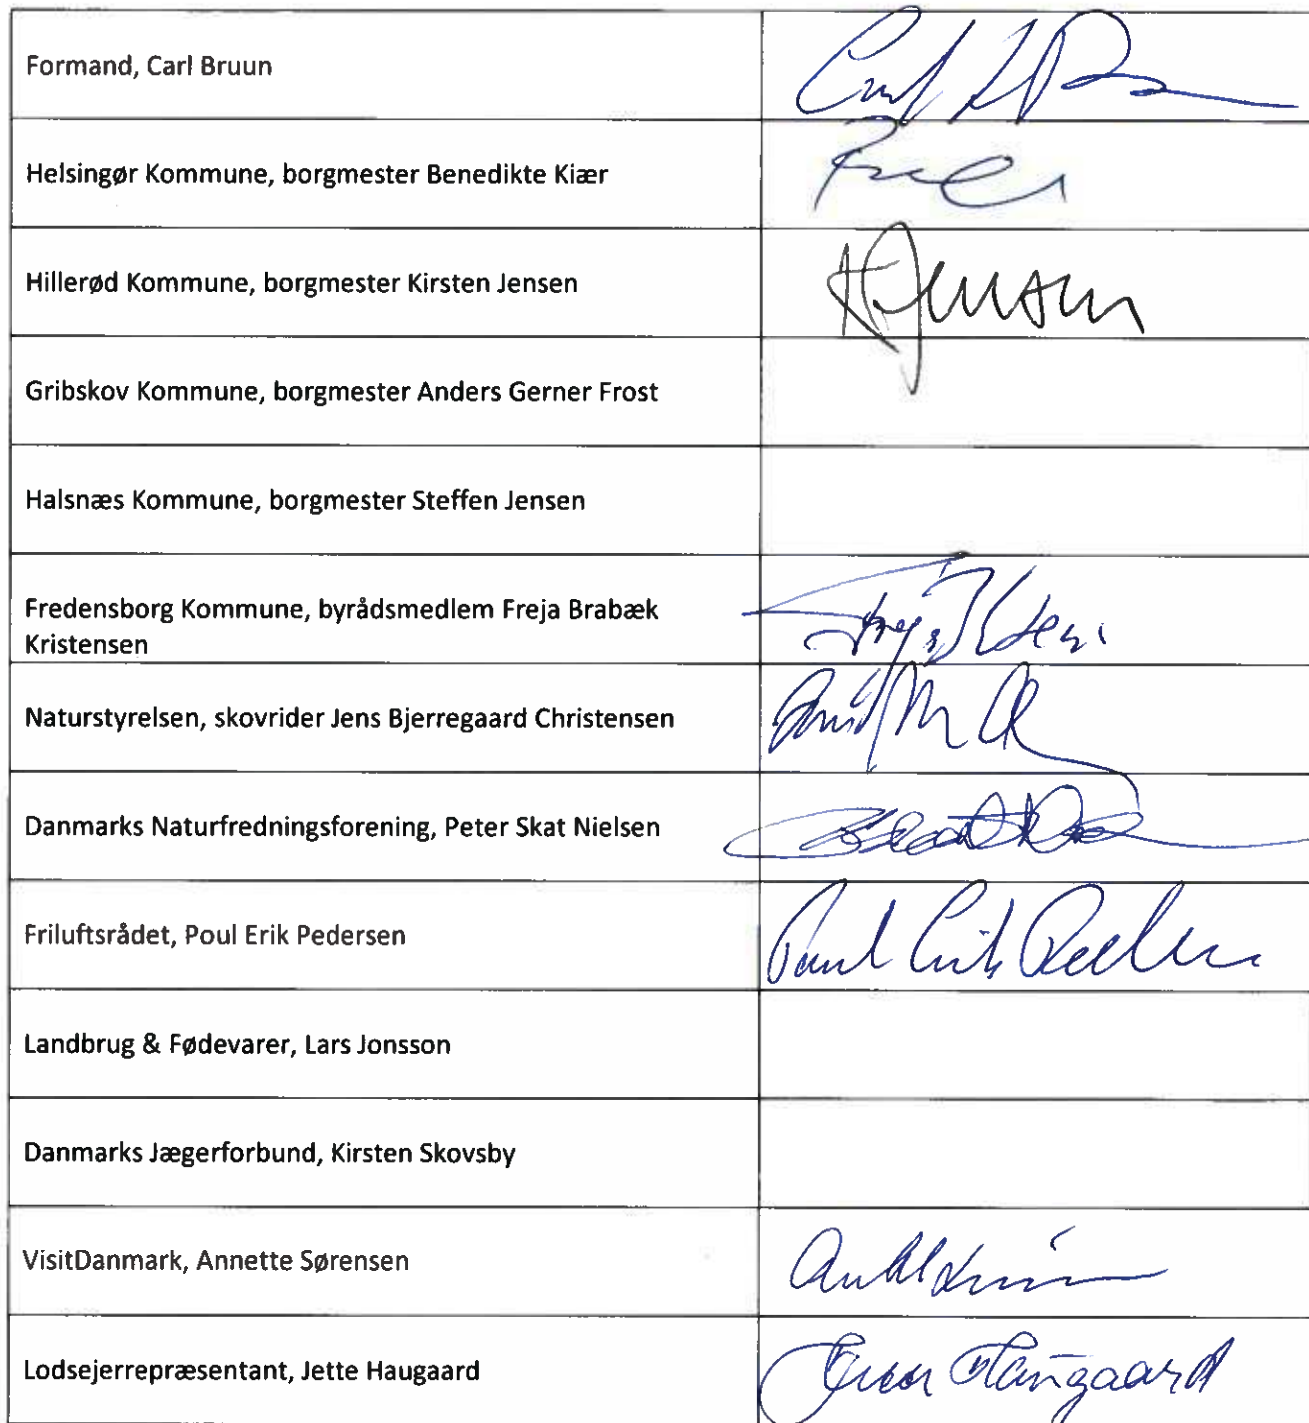 Formand, Carl Bruun
Helsingør Kommune, borgmester Benedikte Kiær
Hillerød Kommune, borgmester Kirsten Jensen
KJensen
Gribskov Kommune, borgmester Anders Gerner Frost
Halsnæs Kommune, borgmester Steffen Jensen
Fredensborg Kommune, byrådsmedlem Freja Brabæk
Kristensen
Naturstyrelsen, skovrider Jens Bjerregaard Christensen
Danmarks Naturfredningsforening, Peter Skat Nielsen
Friluftsrådet, Poul Erik Pedersen
Poul Erik Pedersen
Landbrug & Fødevarer, Lars Jonsson
Danmarks Jægerforbund, Kirsten Skovsby
VisitDanmark, Annette Sørensen
Lodsejerrepræsentant, Jette Haugaard
Haugaard